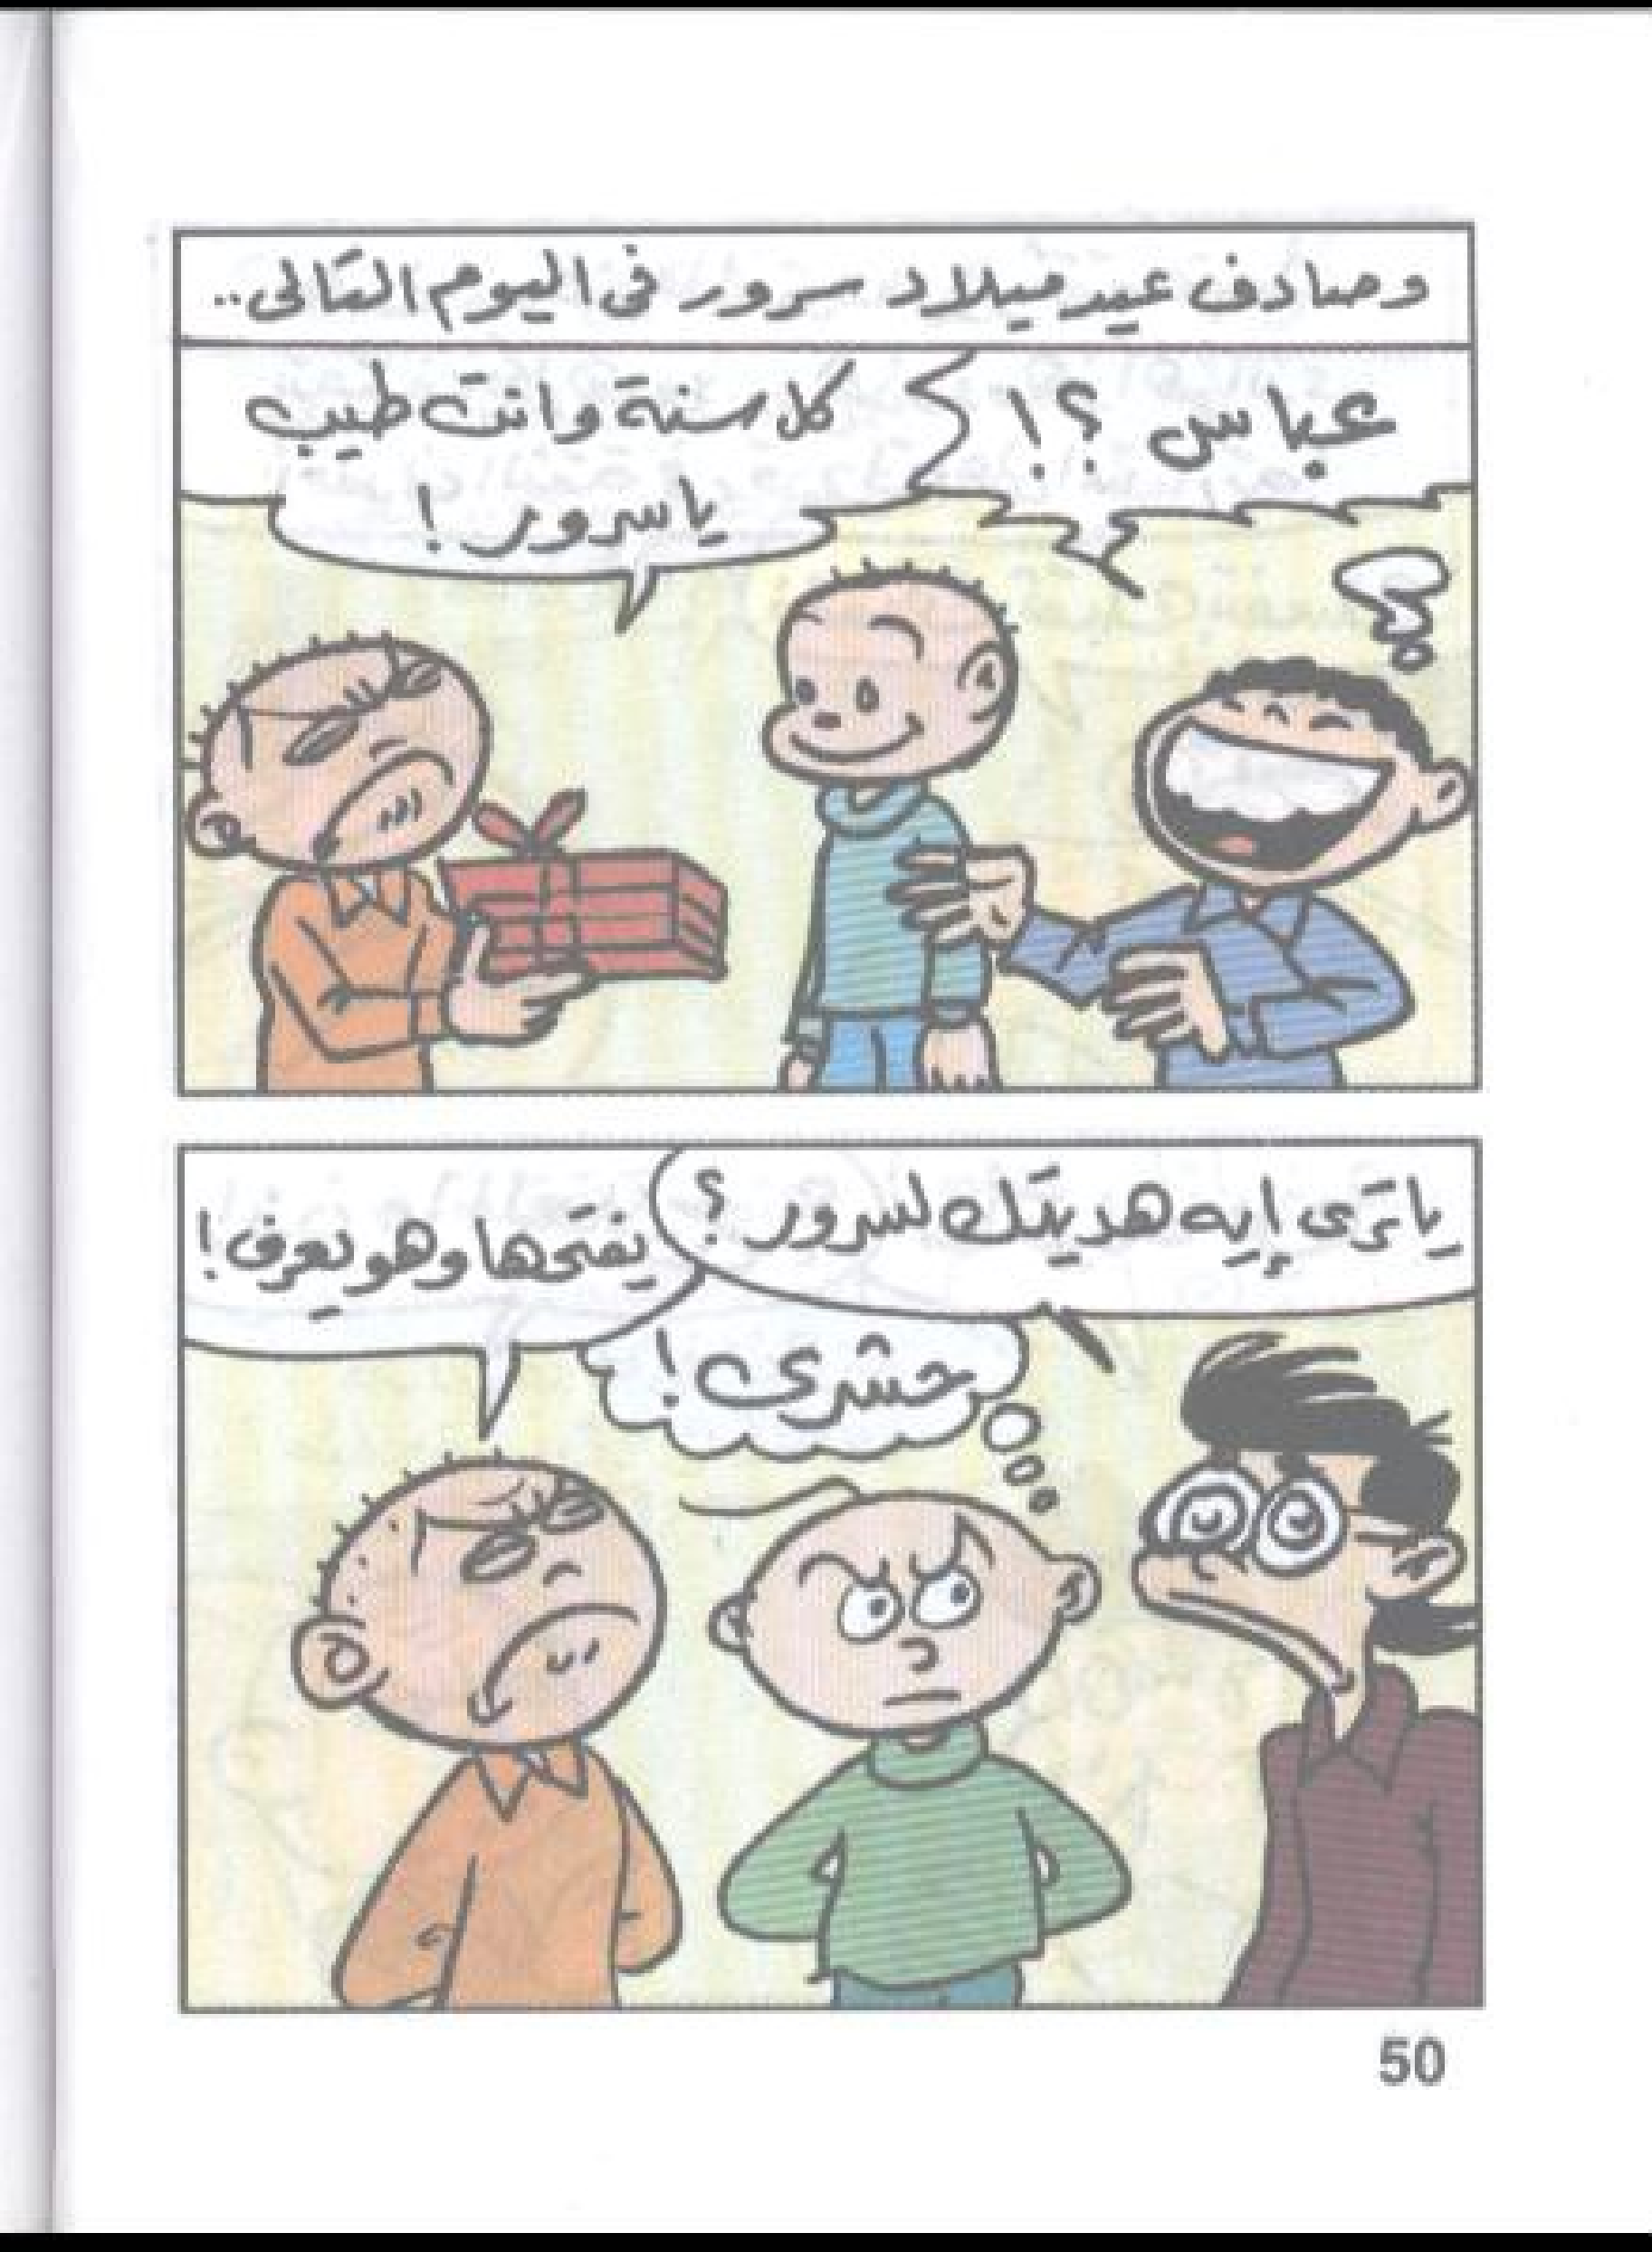 وصادف عيد ميلاد سرور فى اليوم التالى..
عباس ؟!
كل سنة وانت طيب
يا سرور !
يا ترى إيه هديتك لسرور ؟
يفتحها وهو يعرف !
حشرى !
50